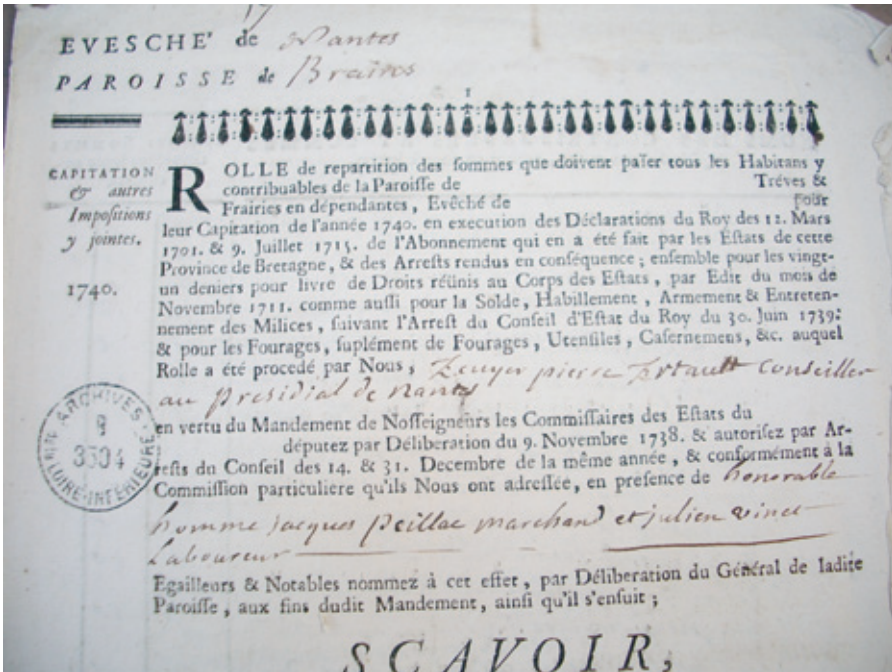 EVESCHE' de Nantes
PAROISSE de Braires
1
CAPITATION
& autres
Impositions
y jointes.
1740.
ROLLE de repartition des sommes que doivent païer tous les Habitans y
contribuables de la Paroisse de Tréves &
Frairies en dépendantes, Evêché de pour
leur Capitation de l'année 1740. en execution des Déclarations du Roy des 12. Mars
1701. & 9. Juillet 1715. de l'Abonnement qui en a été fait par les Estats de cette
Province de Bretagne, & des Arrests rendus en conséquence ; ensemble pour les vingt-
un deniers pour livre de Droits réünis au Corps des Estats, par Edit du mois de
Novembre 1711. comme aussi pour la Solde, Habillement, Armement & Entreten-
nement des Milices, suivant l'Arrest du Conseil d'Estat du Roy du 30. Juin 1739:
& pour les Fourages, suplément de Fourages, Utensiles, Casernemens, &c. auquel
Rolle a été procedé par Nous, pierre conseiller
au presidial de nantes
en vertu du Mandement de Nosseigneurs les Commissaires des Estats du
députez par Déliberation du 9. Novembre 1738. & autorisez par Ar-
rests du Conseil des 14. & 31. Decembre de la même année, & conformément à la
Commission particuliere qu'ils Nous ont adressée, en presence de honorable
homme jacques peillac marchand et julien vince
Laboureur
Egailleurs & Notables nommez à cet effet, par Déliberation du Général de ladite
Paroisse, aux fins dudit Mandement, ainsi qu'il s'ensuit ;
SCAVOIR,
ARCHIVES
B
3504
LOIRE-INFÉRIEURE